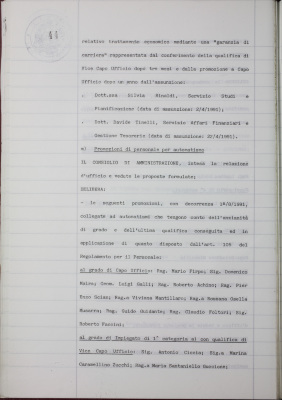 44
relativo trattamento economico mediante una "garanzia di
carriera" rappresentata dal conferimento della qualifica di
Vice Capo Ufficio dopo tre mesi e della promozione a Capo
Ufficio dopo un anno dall'assunzione:
. Dott.ssa Silvia Rinaldi, Servizio Studi e
Pianificazione (data di assunzione: 2/4/1981);
. Dott. Davide Tinelli, Servizio Affari Finanziari e
Gestione Tesoreria (data di assunzione: 22/4/1981).
Promozioni di personale per automatismo
IL CONSIGLIO DI AMMINISTRAZIONE, intesa la relazione
d'ufficio e vedute le proposte formulate;
DELIBERA:
- le seguenti promozioni, con decorrenza 1981,
collegate ad automatismi che tengono conto dell'anzianità
di grado e dell'ultima qualifica conseguita ed in
applicazione di quanto disposto dall'art. 109 del
Regolamento per il Personale:
al grado di Capo Ufficio: Rag. Mario Sig. Domenico
Geom. Luigi Galli; Rag. Roberto Rag. Pier
Enzo Rag.a Viviana Rag.a Rossana
Rag. Guido Guidante; Rag. Claudio Sig.
Roberto
al grado di Impiegato di 1° categoria si con qualifica di
Vice Capo Ufficio: Sig. Antonio Sig.a Marina
Sig.a Maria